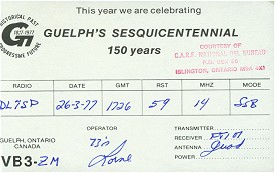 This year we are celebrating
HISTORICAL PAST
1827-1977
PROGRESSIVE FUTURE
GUELPH'S SESQUICENTENNIAL
150 years
COURTESY OF
C.A.R.F. NATIONAL QSL BUREAU
ISLINGTON, ONTARIO M9A 4X1
RADIO DATE GMT RST MHZ MODE
DL7SP 26-3-77 1726 59 14 SSB
GUELPH, ONTARIO
CANADA
OPERATOR
TRANSMITTER
RECEIVER
ANTENNA Quad
POWER
VB3-ZM
73's
Lorne